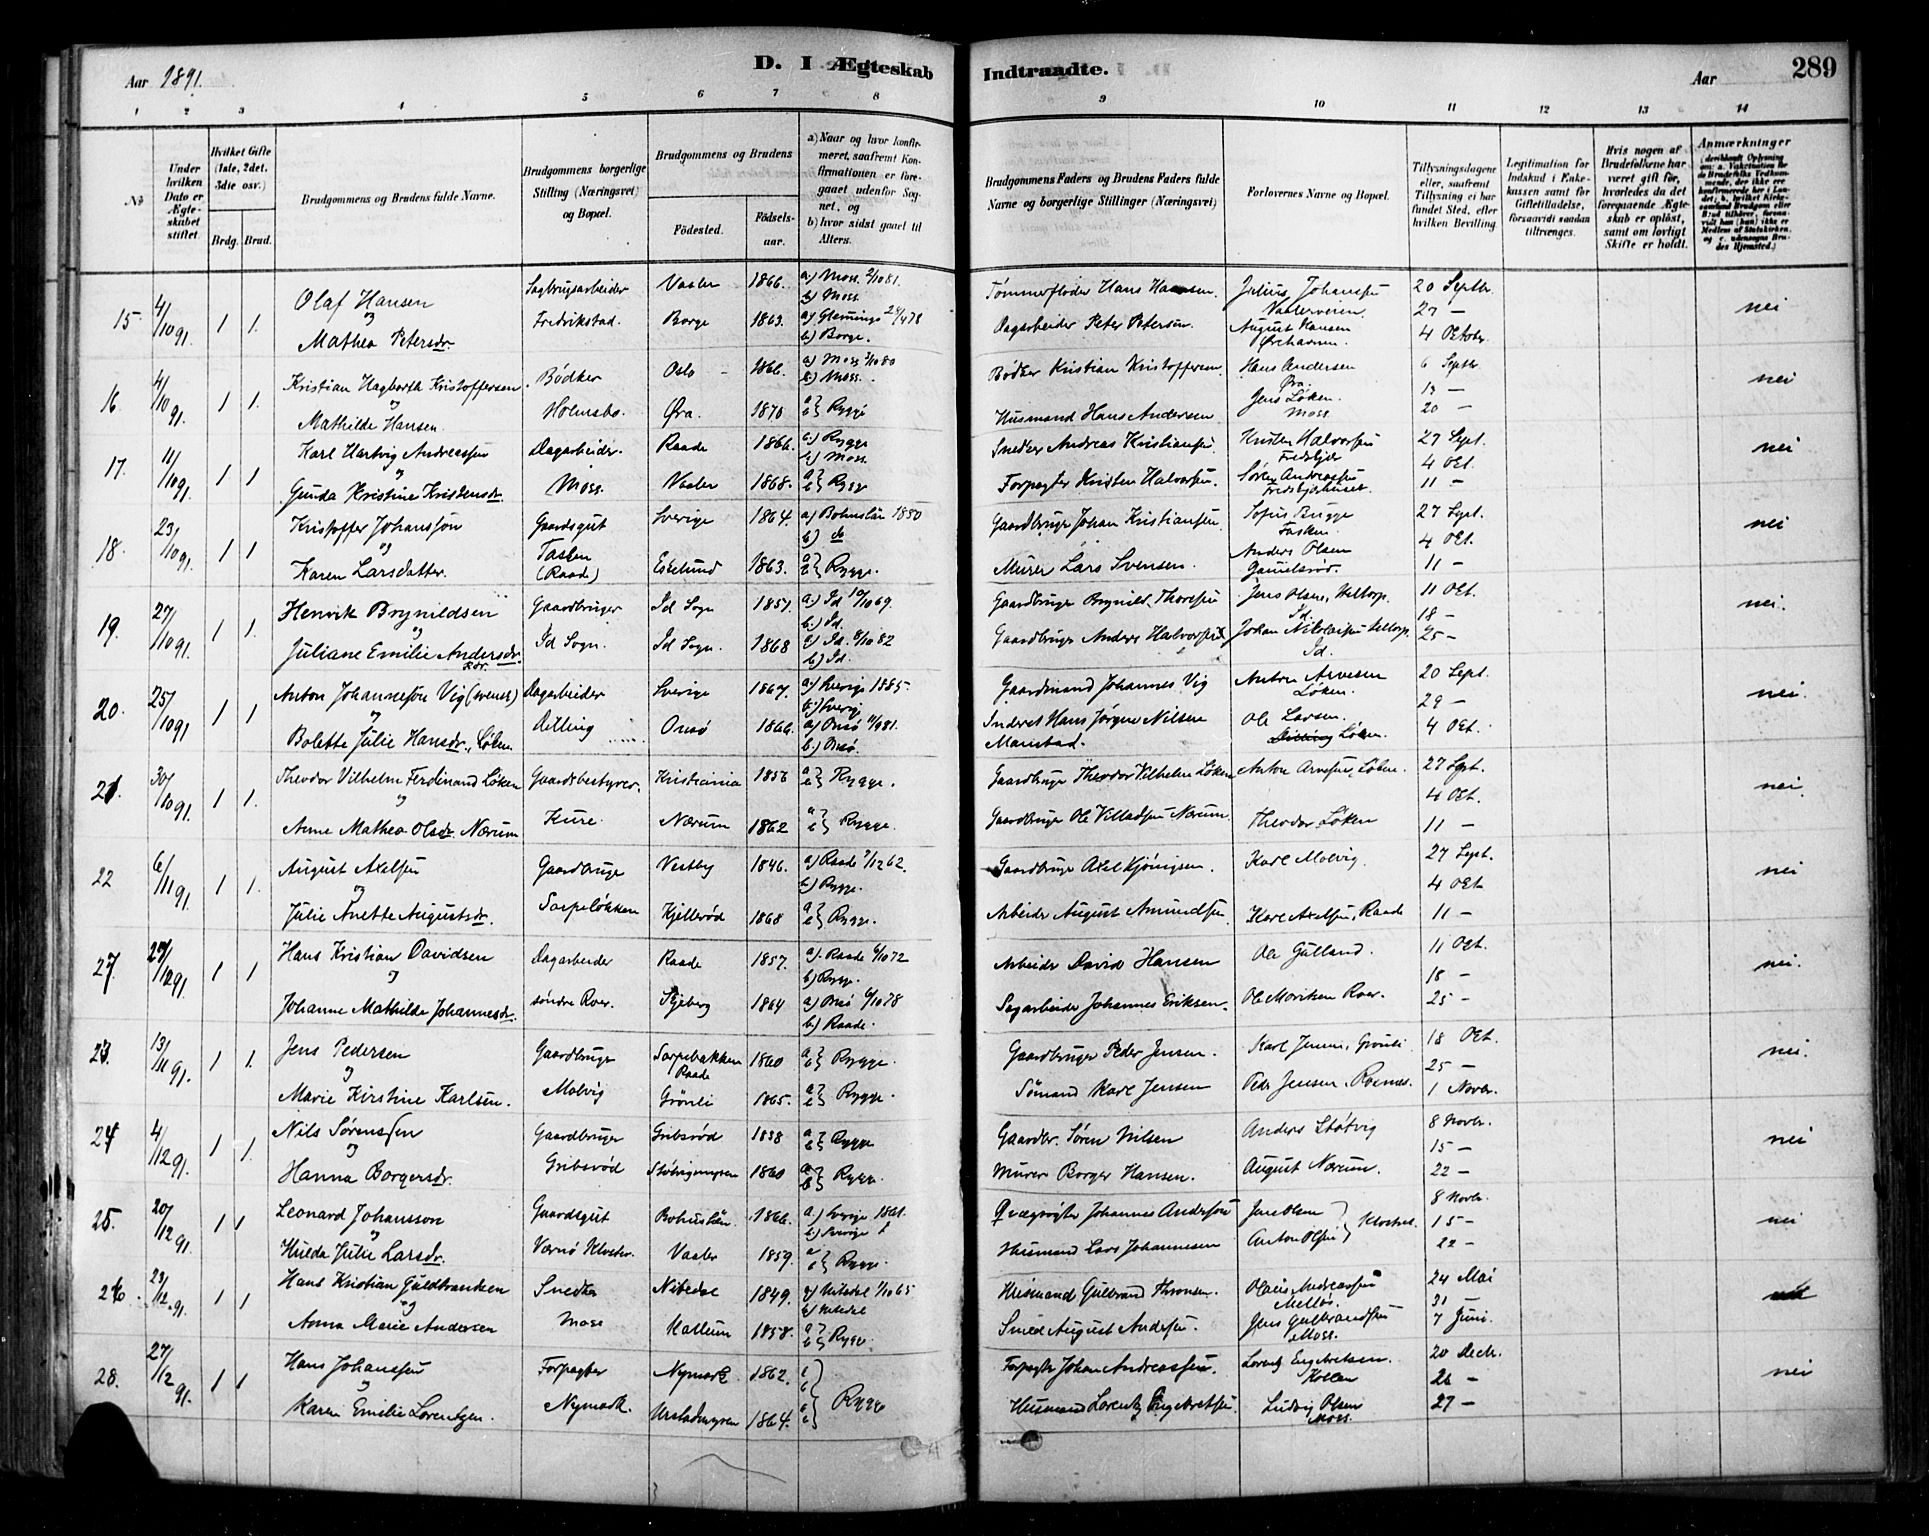 Aar 1891.
D. I Ægteskab Indtraadte.
Aar
289
1 2 3 4 5 6 7 8 9 10 11 12 13 14
No
Under hvilken Dato er Ægteskabet stiftet.
Hvilket Gifte (1ste, 2det, 3die osv.)
Brdg. Brud.
Brudgommens og Brudens fulde Navne.
Brudgommens borgerlige Stilling (Næringsvei) og Bopæl.
Brudgommens og Brudens
Fødested.
Fødsels-aar.
a) Naar og hvor konfirmeret, saafremt Konfirmationen er foregaaet udenfor Sognet, og
b) hvor sidst gaaet til Alters.
Brudgommens Faders og Brudens Faders fulde Navne og borgerlige Stillinger (Næringsvei)
Forlovernes Navne og Bopæl.
Tillysningsdagene eller, saafremt Tillysning ei har fundet Sted, efter hvilken Bevilling.
Legitimation for Indskud i Enkekassen samt for Giftetilladelse, forsaavidt saadan tiltrænges.
Hvis nogen af Brudefolkene har været gift før, hvorledes da det foregaaende Ægteskab er opløst, samt om lovligt Skifte er holdt.
Anmærkninger
15. 4/10 91. 1 1. Olaf Hansen Sagbrugsarbeider Vaaler 1866. a) Moss 2/10 81. b) Moss Tømmerfløder Hans Hansen. Julius Johansen Vallerveien 20 Septbr. nei
og Mathea Petersdr. Fredrikstad. Borge 1863. a) Glemminge 28/4 78 b) Borge. Dagarbeider Peter Petersen. August Hansen Ørehavnen. 27 – 4 Oktobr.
16. 4/10 91. 1 1. Kristian Hagbarth Kristoffersen Bødker Oslo 1866. a) Moss 3/10 80 b) Moss. Bødker Kristian Kristoffersen. Hans Andersen Øra. 6 Septbr. nei
og Mathilde Hansen. Holmsbo. Øra. 1870 a b } Rygge Husmand Hans Andersen Jens Løken Moss 13 – 20 –
17. 11/10 91. 1 1 Karl Hartvig Andreassen Dagarbeider. Raade 1866. a) Rygge b) Moss. Snedker Andreas Kristiansen Kristen Halvorsen 27 Sept. nei
og Gunda Kristine Kristensdr. Moss. Vaaler 1868. a b } Rygge Forpagter Kristen Halvorsen. Søren Andreassen 4 Okt. 11 –
18. 23/10 91. 1 1. Kristoffer Johansson Gaardsgut Sverige 1864. a) Bohuslän 1880 b) do Gaardbruger Johan Kristiansen Sofus Bugge Tasken 27 Sept. nei
og Karen Larsdatter. Tasken (Raade) Eskelund 1863. a b } Rygge. Murer Lars Svensen. Anders Olsen Gamelsrød. 4 Okt. 11 –
19. 27/10 91. 1 1. Henrik Brynildsen Gaardbruger Id Sogn 1851. a) Id 10/10 69. b) Id. Gaardbruger Brynild Thoresen Jens Olsen, Veltorp Id. 11 Okt. nei.
og Juliane Emilie Andersdr. Id Sogn. Id Sogn. 1868 a) Id. 8/10 82 b) Id. Gaardbruger Anders Halvorsen Johan Nikolaisen Veltorp. Id. 18 – 25 –
20. 25/10 91 1 1. Anton Johannesen Vig (svensk) Dagarbeider Sverige 1867. a) Sverige 1885. b) Sverig Gaardmand Johannes Vig Anton Arvesen Løken. 20 Sept. nei.
og Bolette Julie Hansdr., Løken. Dilling Onsø 1866. a) Onsø 11/9 81. b) Onsø. Inderst Hans Jørgen Nilsen Mariestad. Ole Larsen Dilling Løken. 29 – 4 Okt.
21. 30/10 91. 1 1. Theodor Vilhelm Ferdinand Løken Gaardsbestyrer. Kristiania 1856 a b } Rygge. Gaardbruger Theodor Vilhelm Løken Anton Arvesen, Løken. 27 Sept. nei.
og Anne Mathea Olsdr. Nærum Kure. Nærum 1862 a b } Rygge. Gaardbruger Ole Villadsen Nærum. Theodor Løken 4 Okt. 11 –
22 6/11 91. 1 1. August Axelsen Gaardbruger Vestby 1846. a) Raade 7/12 62. b) Rygge. Gaardbruger Axel Kjönigsen. Karl Molvig. 27 Sept. nei
og Julie Anette Augustsdr. Sarpeløkken Kjellerød 1868 a b } Rygge. Arbeider August Amundsen Karl Axelsen, Raade 4 Okt 11 –
27. 29/12 91. 1 1 Hans Kristian Davidsen Dagarbeider Raade 1857. a) Raade 6/10 72 b) Rygge. Arbeider David Hansen Ole Gulland. 11 Okt. nei.
og Johanne Mathilde Johannesdr. søndre Roer. Skjeberg 1864 a) Onsø 6/10 78 b) Raade. Sagarbeider Johannes Eriksen. Ole Moriksen Roer. 18 – 25 –
23. 13/11 91. 1 1. Jens Pedersen Gaardbruger Sarpebakken Raade 1860 a b } Rygge. Gaardbruger Peder Jensen. Karl Jensen, Grønli 18 Okt. nei.
og Marie Kirstine Karlsen. Molvig Grönli 1865. a b } Rygge. Sømand Karl Jensen Peder Jensen, Rosnæs. 25 – 1 Novbr.
24 4/12 91. 1 1. Nils Sørenssen Gaardbruger Gribsrød 1838 a b } Rygge Gaardbr. Søren Nilsen Anders Støtvig 8 Novbr. nei
og Hanna Borgersdr. Gribsrød Støtvigmyren 1860 a b } Rygge. Murer Borger Hansen. August Nærum. 15 – 22 –
25. 20/12 91. 1 1 Leonard Johansson Gaardsgut Bohuslän. 1866. a) Sverige 1881. b) Sverige Qvægrøgter Johannes Andersen Jens Olsen 8 Novbr. nei
Hulda Julie Larsdr. Værnø Kloster. Vaaler 1859. a b } Rygge. Husmand Lars Johannesen Anton Olsen } Klostret. 15 – 22 –
26. 23/12 91. 1 1 Hans Kristian Guldbrandsen Snedker Nitedal 1849. a) Nitedal 1/10 65 b) Nitedal Husmand Gulbrand Thronsen. Olaus Andreassen Melløs. 24 Mai
og Anna Marie Andersen Moss Kallum 1858. a b } Rygge. Smed August Andersen. Jens Gulbrandsen Moss. 31 – 7 Juni.
28. 27/12 91. 1 1 Hans Johanssen Forpagter Nymark 1862. a b Forpagter Johan Andreassen. Lorentz Engebretsen. Kollen 20 Decbr. nei
og Karen Emilie Lorentzen. Nymark. Ursladmyren 1864. a b } Rygge Husmand Lorentz Engebretsen. Ludvig Olsen Moss. 26 – 27 –